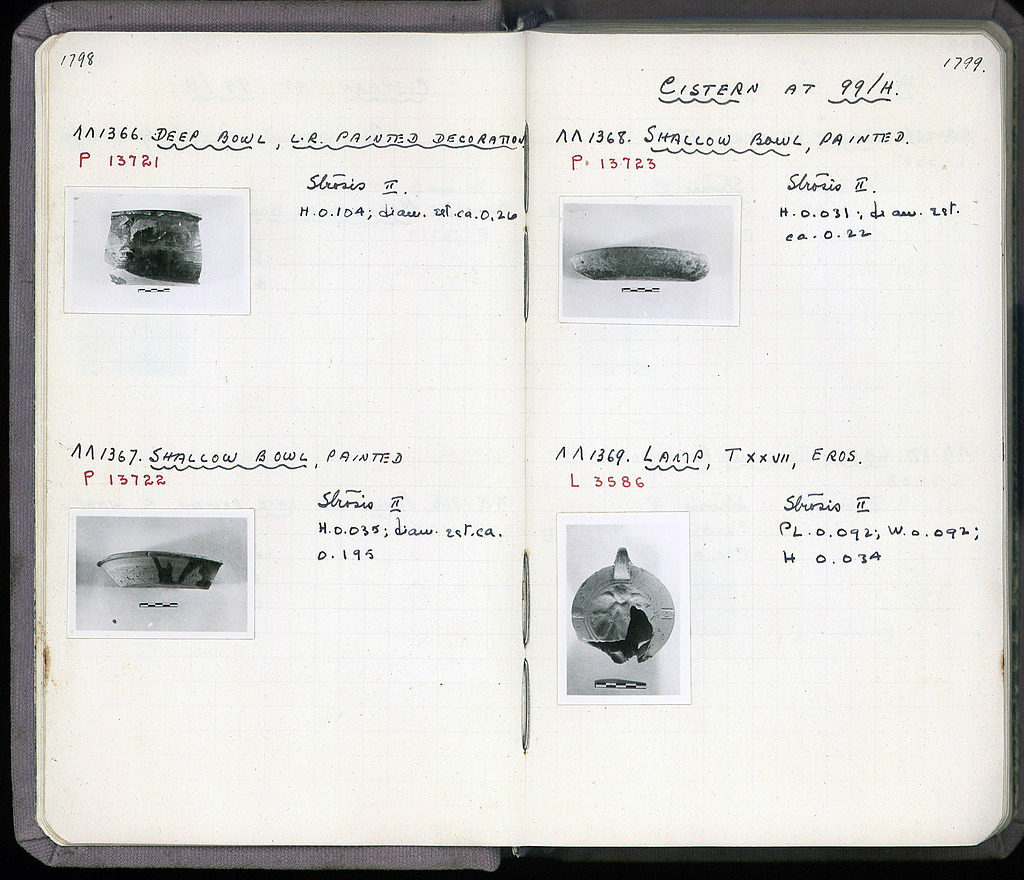 1798
ΛΛ1366. DEEP BOWL, L.R. PAINTED DECORATION
P 13721
Strōsis II.
H.0.104; diam. est. ca. 0.26
ΛΛ1367. SHALLOW BOWL, PAINTED
P 13722
Strōsis II
H.0.035; diam. est. ca.
0.195
1799.
CISTERN AT 99/H.
ΛΛ1368. SHALLOW BOWL, PAINTED.
P. 13723
Strōsis II.
H.0.031; diam. est.
ca. 0.22
ΛΛ1369. LAMP, T XXVII, EROS.
L 3586
Strōsis II
PL. 0.092; W. 0.092;
H 0.034